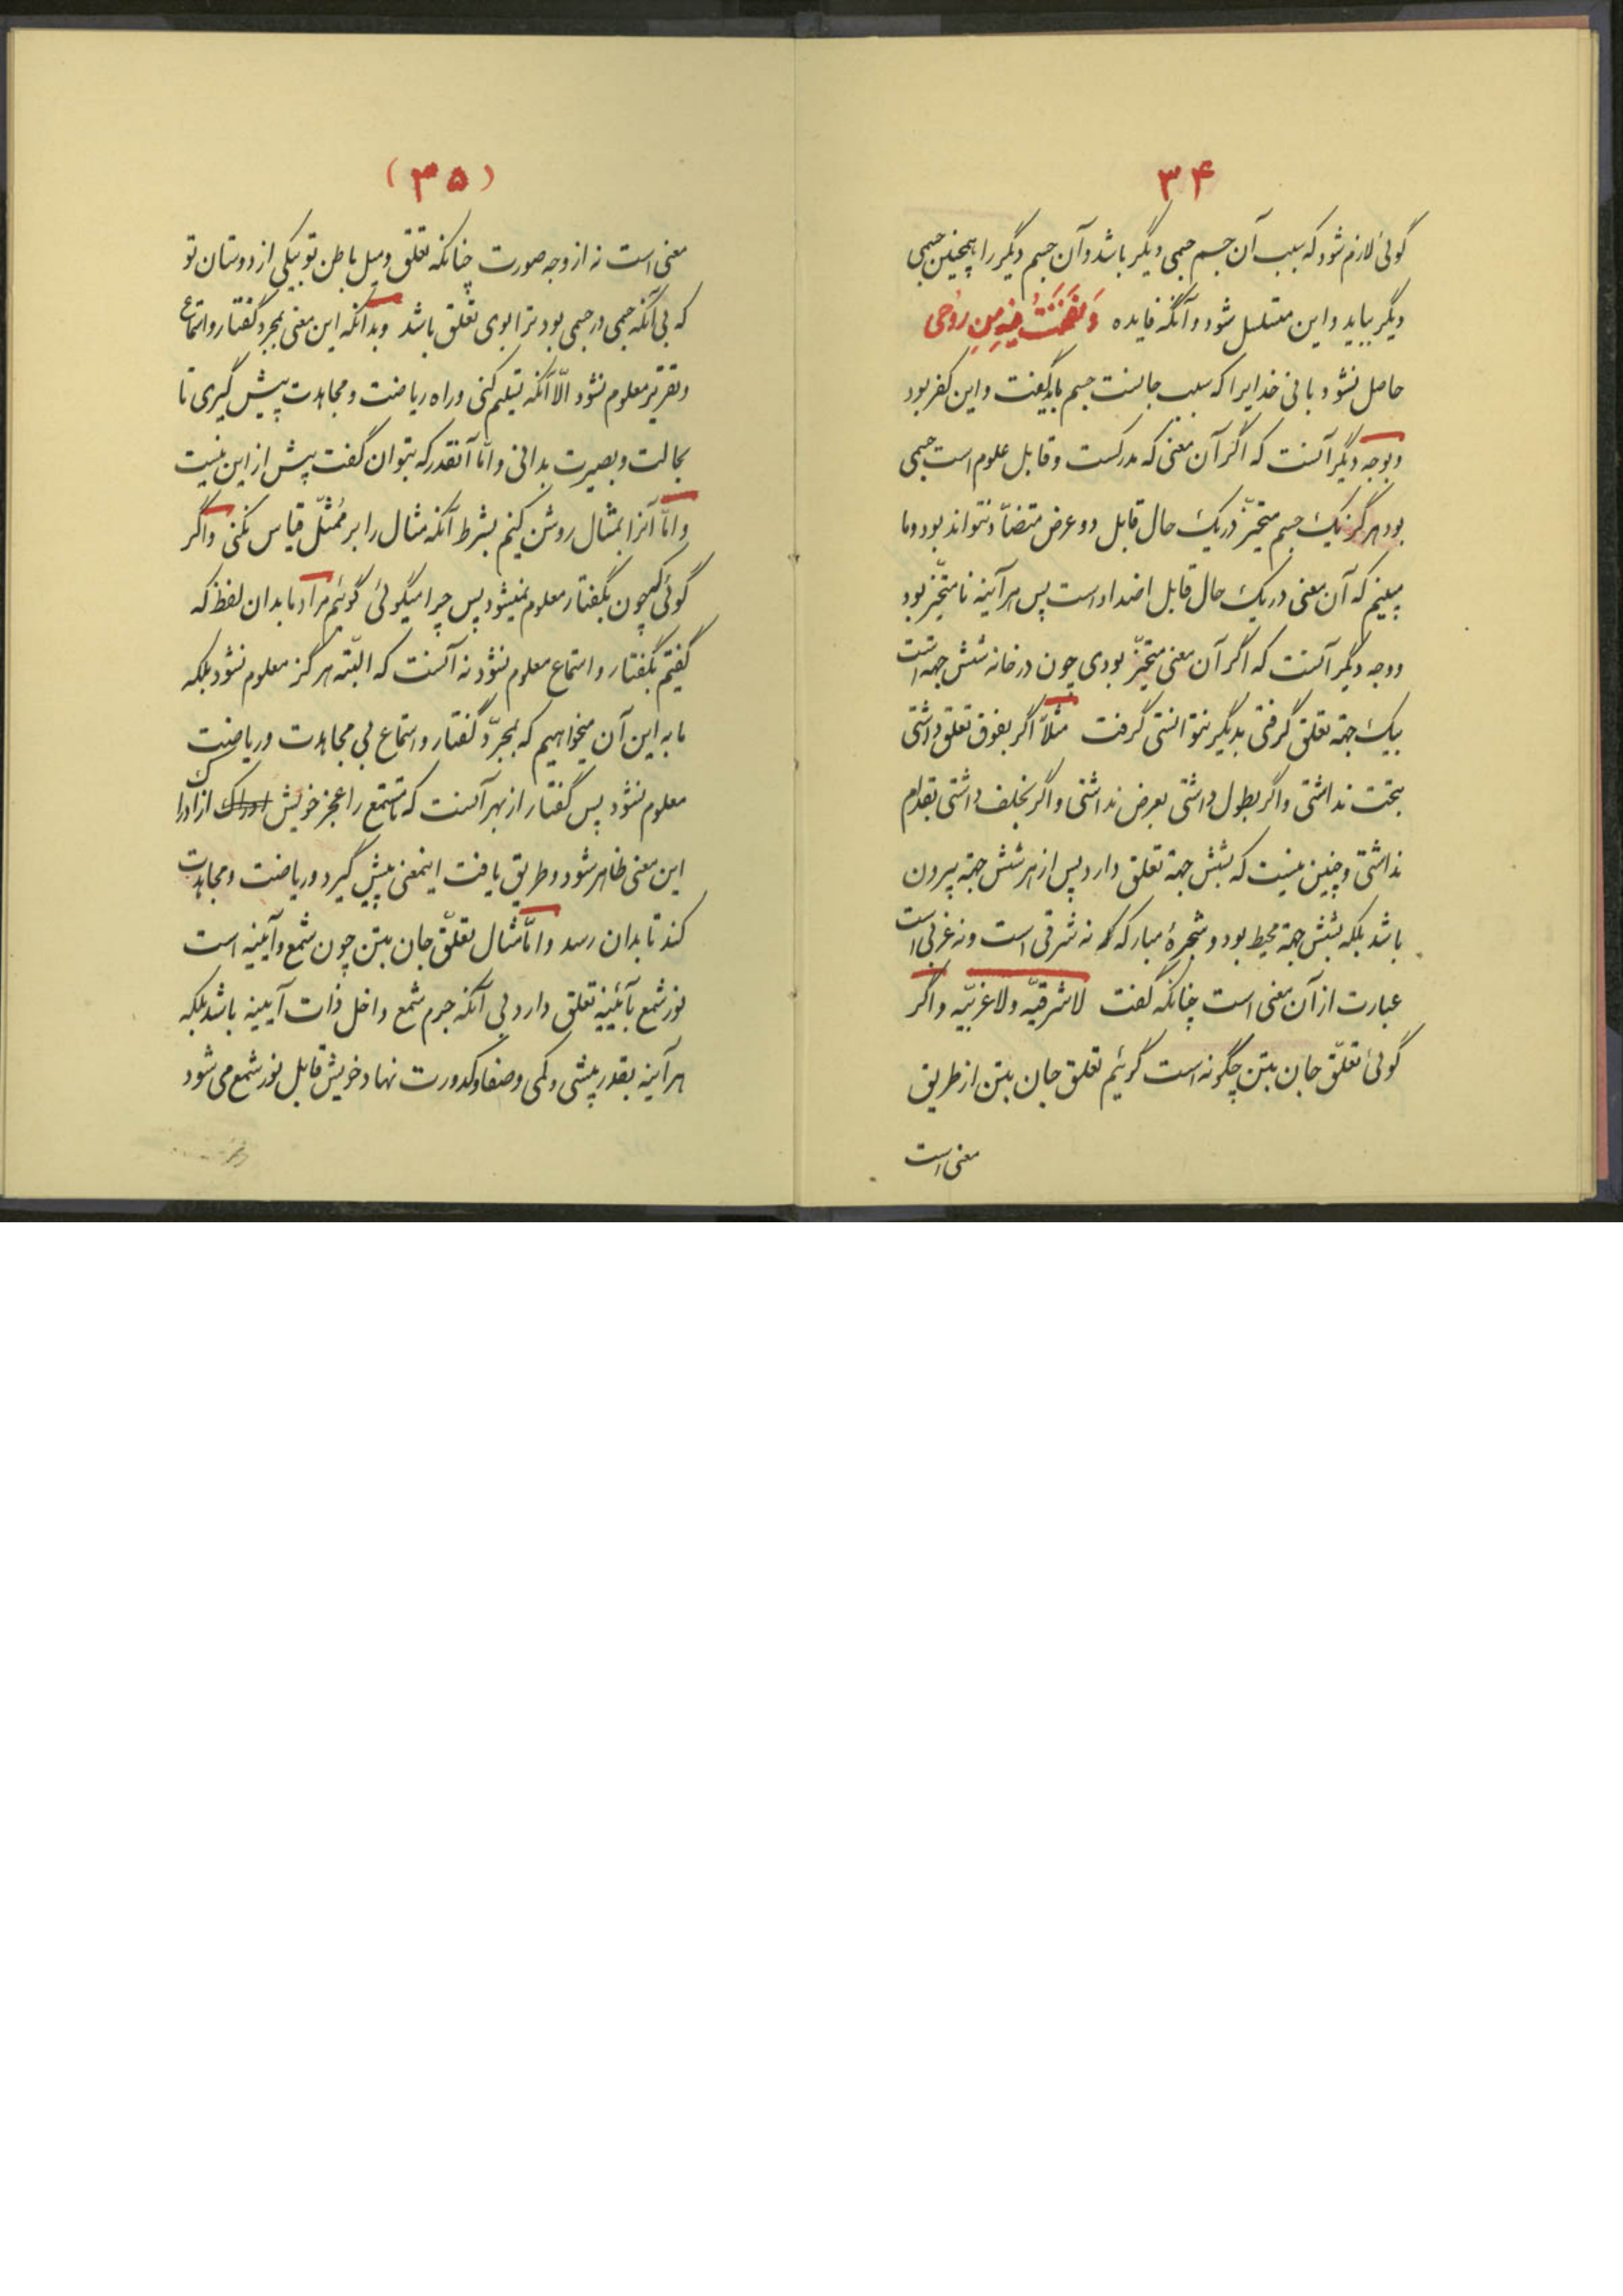 ۳۴
گوئی لازم شود که سبب آن جسم جسمی دیگر باشد و آن جسم دیگر را همچنین جسمی
دیگر بیاید و این متسلسل شود و آنگه فایده وَ نَفَخْتُ فیهِ مِن رُوحی
حاصل نشود یا نی خدایرا که سبب جانست جسم باید گفت و این کفر بود
و بوجه دیگر آنست که اگر آن معنی که مدرکست و قابل علوم است جسمی
بود هرگز یک جسم متحیّز در یک حال قابل دو عرض متضادّ نتواند بود و ما
می‌بینم که آن معنی در یک حال قابل اضداد است پس هر آینه نامتحیّز بود
و وجه دیگر آنست که اگر آن معنی متحیّز بودی چون در خانه شش جهة است
بیک جهة تعلق گرفتی بدیگر نتوانستی گرفت مثلاً اگر بفوق تعلق داشتی
بتحت نداشتی و اگر بطول داشتی بعرض نداشتی و اگر بخلف داشتی بقدام
نداشتی و چنین نیست که بشش جهة تعلق دارد پس از هر شش جهة بیرون
باشد بلکه بشش جهة محیط بود و شجرهٔ مبارکه که نه شرقی است و نه غربی است
عبارت از آن معنی است چنانکه گفت لا شرقیّه ولا غربیّه و اگر
گوئی تعلّق جان بتن چگونه است گوئیم تعلق جان بتن از طریق
معنی است
(۳۵)
معنی است نه از وجه صورت چنانکه تعلق و میل باطن تو بیکی از دوستان تو
که بی آنکه جسمی در جسمی بود ترا بوی تعلق باشد و بدانکه این معنی بمجرد گفتار و استماع
و تقریر معلوم نشود الّا آنکه تسلیم کنی و راه ریاضت و مجاهدت پیش گیری تا
بحالت و بصیرت بدانی و امّا آنقدر که بتوان گفت پیش از این نیست
و امّا آنرا بمثال روشن کنیم بشرط آنکه مثال را بر مُمثّل قیاس نکنی و اگر
گوئی که چون بگفتار معلوم نمیشود پس چرا میگوئی گوئیم مراد ما بدان لفظ که
گفتیم بگفتار و استماع معلوم نشود نه آنست که البتّه هرگز معلوم نشود بلکه
ما به این آن میخواهیم که بمجرّد گفتار و استماع بی مجاهدت و ریاضت
معلوم نشود پس گفتار از بهر آنست که تا مستمع را عجز خویش از ادراک
این معنی ظاهر شود و طریق یافت اینمعنی پیش گیرد و ریاضت و مجاهدت
کند تا بدان رسد و امّا مثال تعلّق جان بتن چون شمع و آیینه است
نور شمع بآئینه تعلق دارد بی آنکه جرم شمع داخل ذات آیینه باشد بلکه
هر آینه بقدر بیشی و کمی و صفا و کدورت نهاد خویش قابل نور شمع می شود